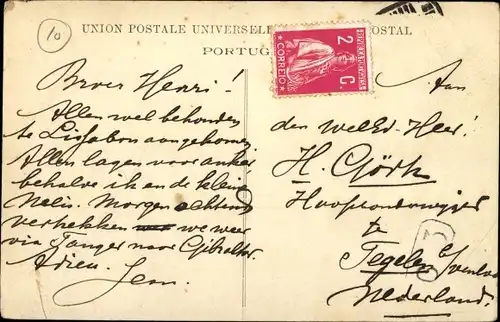 10
UNION POSTALE UNIVERSELLE POSTAL
PORTUG
2 C.
CORREIO
Broer Henri!
Allen wel behouden
te Lissabon aangekomen.
Allen lagen voor anker
behalve ik en de kleine
Nelis. Morgen ochtend
vertrekken we weer
via Tanger naar Gibraltar.
Adieu. Jean.
Aan
den WelEd. Heer!
H.
Hoofdonderwijzer
te
Tegelen b/Venlo
Nederland.